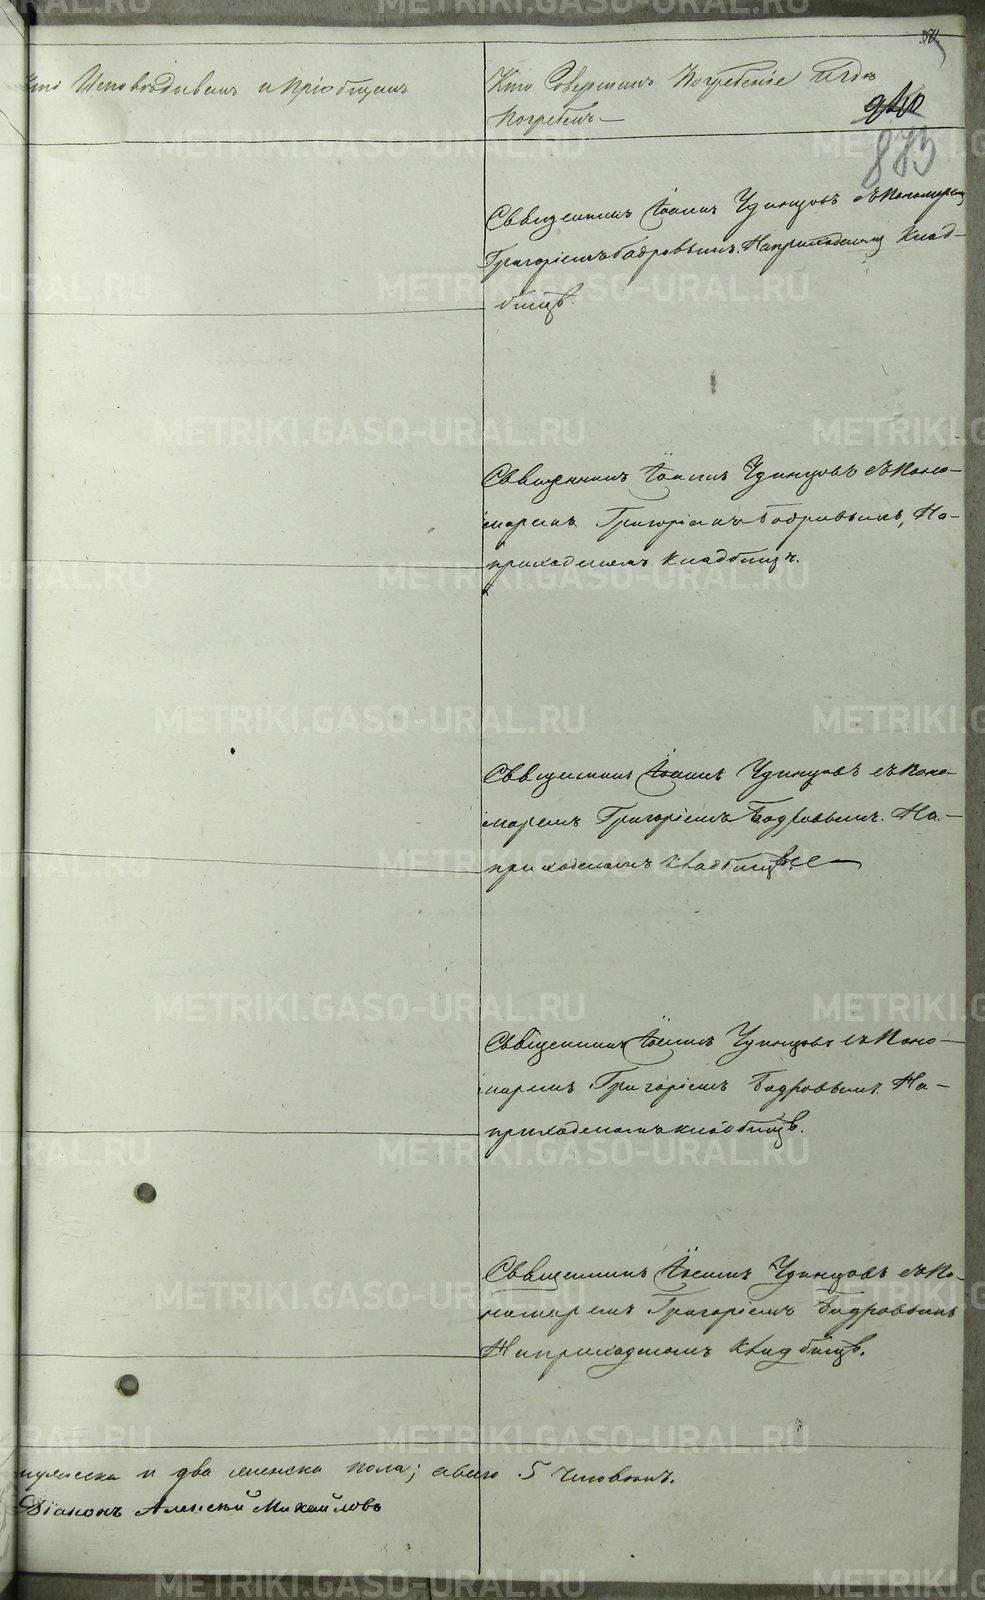 Кто Исповѣдывалъ и Пріобщалъ
Кто Совершалъ Погребеніе и Гдѣ
Погребенъ
873
Священникъ Іоаннъ Чудинцовъ съ Пономаремъ
Григоріемъ Бодровымъ. На приходскомъ Клад-
бищѣ.
Священникъ Іоаннъ Чудинцовъ съ Поно-
маремъ Григоріемъ Бодровымъ, На-
приходскомъ кладбищѣ.
Священникъ Іоаннъ Чудинцовъ съ Поно-
маремъ Григоріемъ Бодровымъ. На-
приходскомъ кладбищѣ
Священникъ Іоаннъ Чудинцовъ съ Поно-
маремъ Григоріемъ Бодровымъ. На-
приходскомъ кладбищѣ.
Священникъ Іоаннъ Чудинцовъ съ По-
номаремъ Григоріемъ Бодровымъ
На приходскомъ кладбищѣ.
мужеска и два женска пола; а всего 5 человѣкъ.
Діаконъ Алексѣй Михайловъ
METRIKI.GASO-URAL.RU